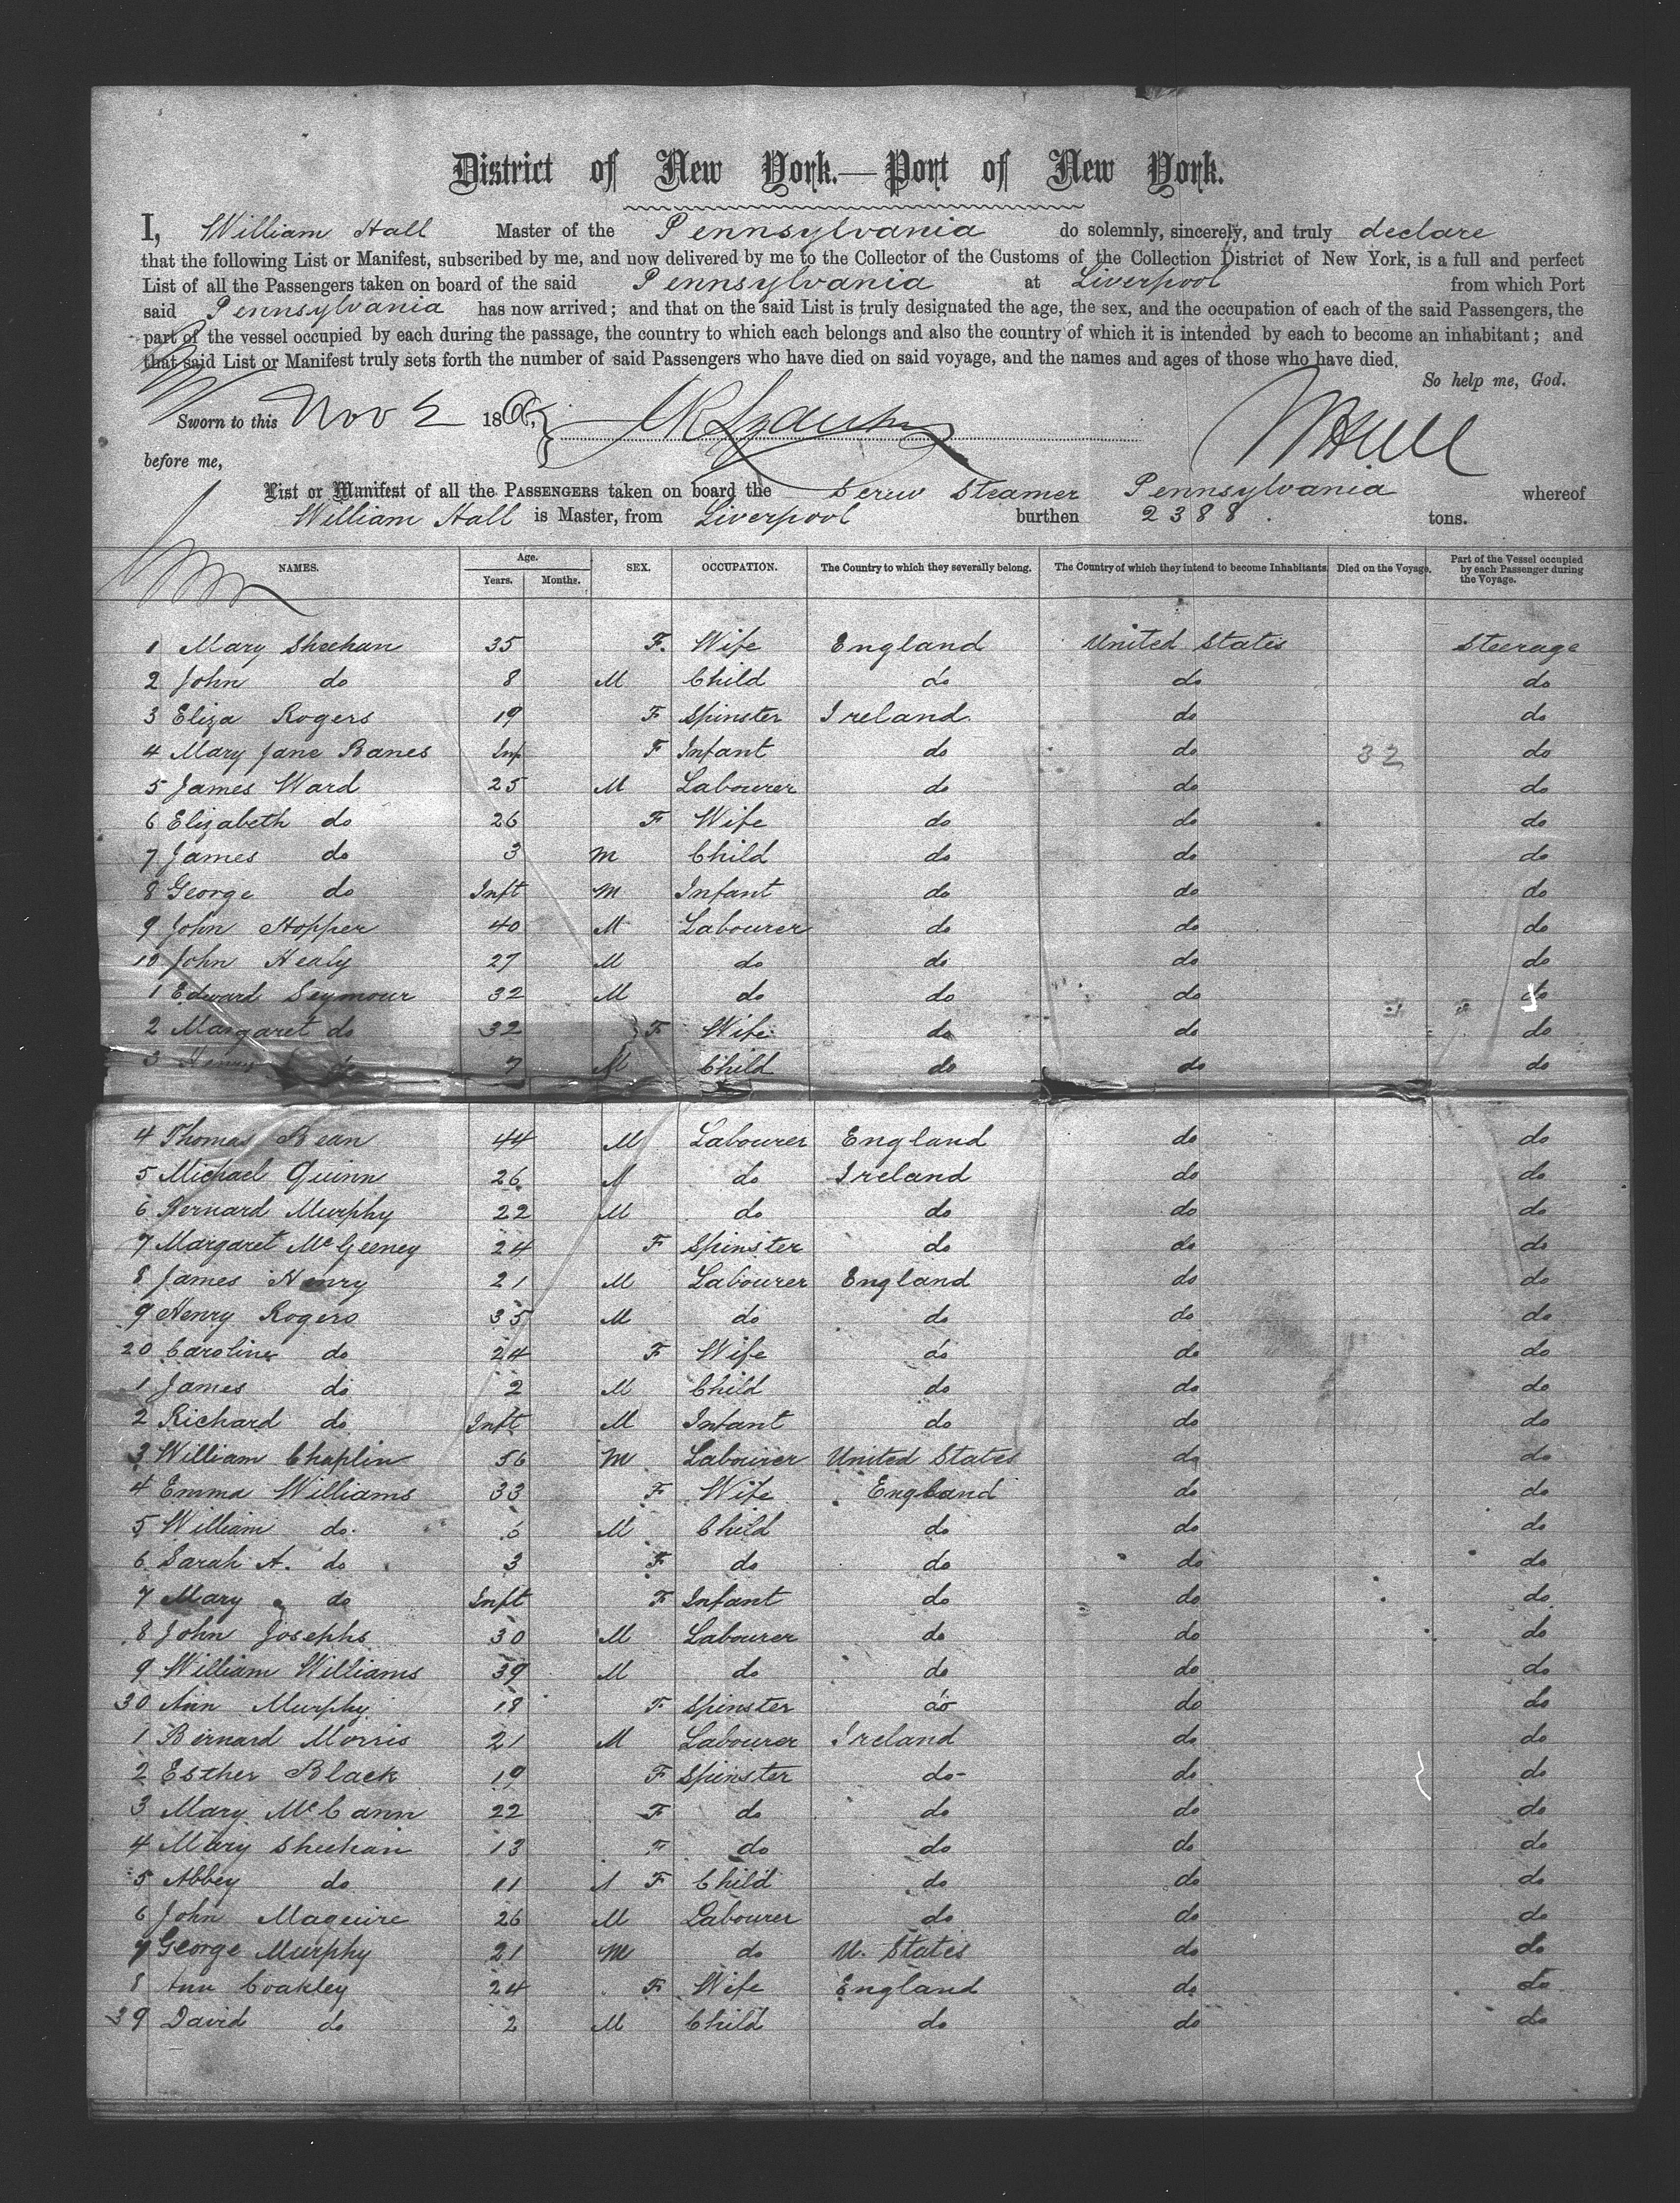 District of New York.—Port of New York.
I, William Hall Master of the Pennsylvania do solemnly, sincerely, and truly declare
that the following List or Manifest, subscribed by me, and now delivered by me to the Collector of the Customs of the Collection District of New York, is a full and perfect
List of all the Passengers taken on board of the said Pennsylvania at Liverpool from which Port
said Pennsylvania has now arrived; and that on the said List is truly designated the age, the sex, and the occupation of each of the said Passengers, the
part of the vessel occupied by each during the passage, the country to which each belongs and also the country of which it is intended by each to become an inhabitant; and
that said List or Manifest truly sets forth the number of said Passengers who have died on said voyage, and the names and ages of those who have died.
So help me, God.
Sworn to this Nov 2 186
before me,
List or Manifest of all the PASSENGERS taken on board the Screw Steamer Pennsylvania whereof
William Hall is Master, from Liverpool burthen 2388. tons.
NAMES. Age. Years. Months. SEX. OCCUPATION. The Country to which they severally belong. The Country of which they intend to become Inhabitants. Died on the Voyage. Part of the Vessel occupied by each Passenger during the Voyage.
1 Mary Sheehan 35 F. Wife England United States Steerage
2 John do 8 M Child do do do
3 Eliza Rogers 19 F Spinster Ireland do do
4 Mary Jane Banes Inf F Infant do do 32 do
5 James Ward 25 M Labourer do do do
6 Elizabeth do 26 F Wife do do do
7 James do 3 M Child do do do
8 George do Inft M Infant do do do
9 John Hopper 40 M Labourer do do do
10 John Healy 27 M do do do do
1 Edward Seymour 32 M do do do do
2 Margaret do 32 F Wife do do do
3 do 7 M Child do do do
4 Thomas Bean 44 M Labourer England do do
5 Michael Quinn 26 do Ireland do do
6 Bernard Murphy 22 M do do do do
7 Margaret McGeeney 24 F Spinster do do do
8 James Henry 21 M Labourer England do do
9 Henry Rogers 35 M do do do do
20 Caroline do 24 F Wife do do do
1 James do 2 M Child do do do
2 Richard do Inft M Infant do do do
3 William Chaplin 56 M Labourer United States do do
4 Emma Williams 33 F Wife England do do
5 William do M Child do do do
6 Sarah A. do 3 F do do do do
7 Mary do Inft F Infant do do do
8 John Josephs 30 M Labourer do do do
9 William Williams 39 M do do do do
30 Ann Murphy 18 F Spinster do do do
1 Bernard Morris 21 M Labourer Ireland do do
2 Esther Black 19 F Spinster do- do do
3 Mary McCann 22 F do do do do
4 Mary Sheehan 13 F do do do do
5 Abbey do 11 F Child do do do
6 John Maguire 26 M Labourer do do do
7 George Murphy 21 M do U. States do do
8 Ann Coakley 24 F Wife England do do
39 David do 2 M Child do do do